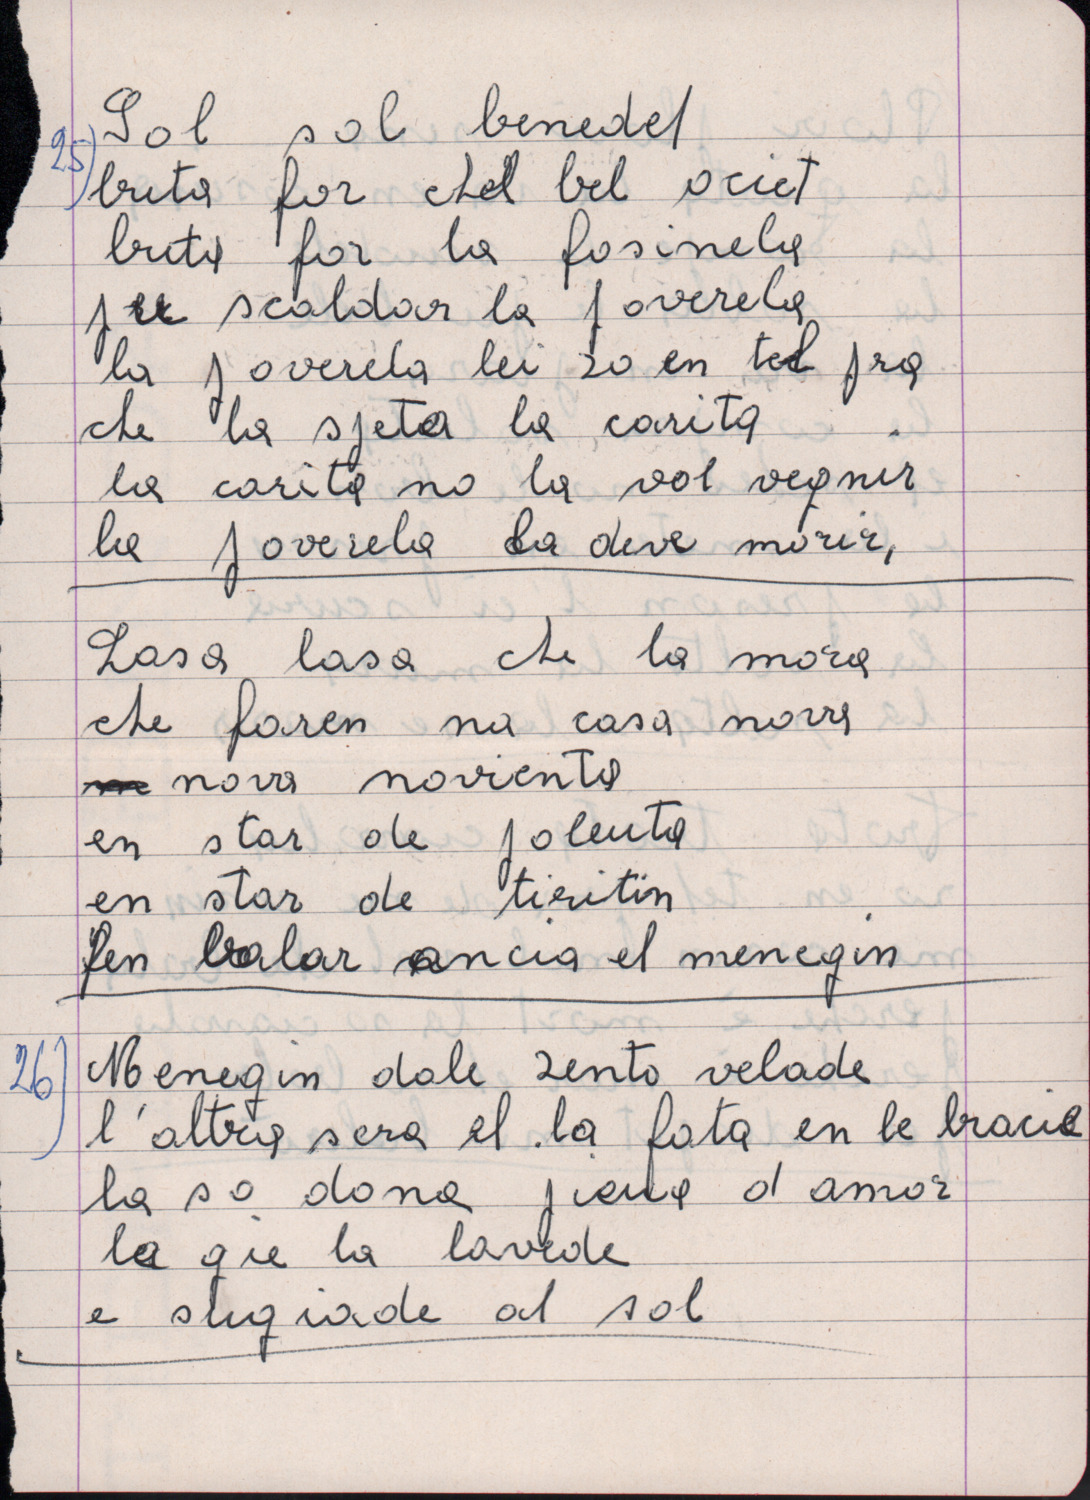 25) Sol sol benedel
buta for chel bel ociet
buta for la fosinela
per scaldar la poverela
la poverela lei zo en tel pra
che la speta la carita
la carita no la vol vegnir
la poverela la deve morir,
Lasa lasa che la mora
che faren na casa nova
nova novienta
en star de polenta
en star de tiritin
fen balar ancia el menegin
26) Menegin dale zento velade
l'altra sera el la fata en le bracie
la so dona piena d amor
le gie la lavede
e sugiade al sol